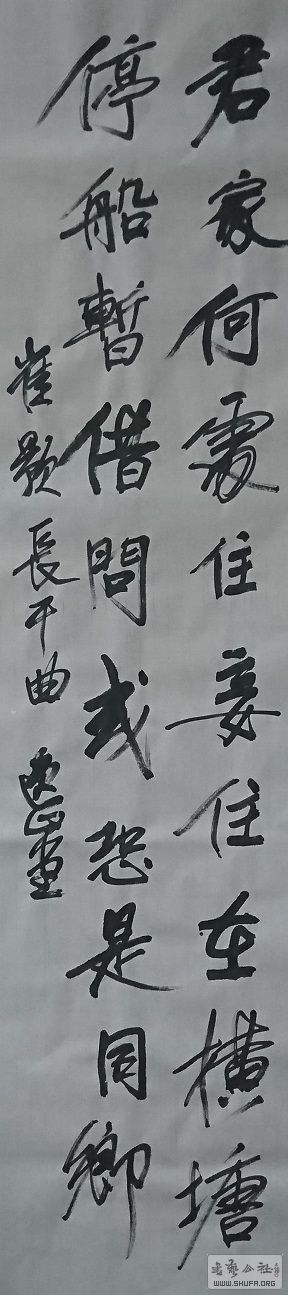 君家何處住妾住在橫塘
停船暫借問或恐是同鄉
崔顥長干曲
書法公社
WWW.SHUFA.ORG